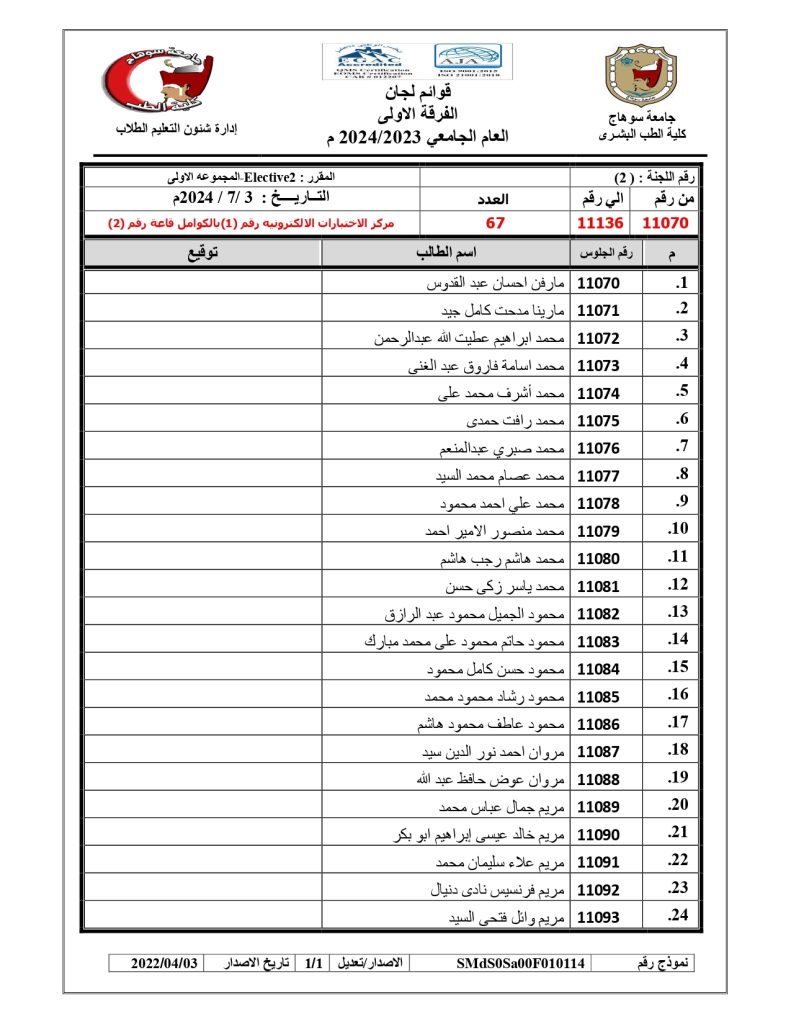 جامعة سوهاج
كلية الطب
إدارة شئون التعليم الطلاب
EGAC
Accredited
QMS Certification
EOMS Certification
CAB # 012207
AJA
ISO 9001:2015
ISO 21001:2018
قوائم لجان
الفرقة الاولى
العام الجامعي 2024/2023 م
جامعة سوهاج
كلية الطب البشرى
رقم اللجنة : ( 2) المقرر : Elective2-المجموعه الاولى
من رقم الي رقم العدد التـاريـــخ : 3 /7 / 2024م
11070 11136 67 مركز الاختبارات الالكترونيه رقم (1)بالكوامل قاعة رقم (2)
م رقم الجلوس اسم الطالب توقيع
1. 11070 مارفن احسان عبد القدوس
2. 11071 مارينا مدحت كامل جيد
3. 11072 محمد ابراهيم عطيت الله عبدالرحمن
4. 11073 محمد اسامة فاروق عبد الغنى
5. 11074 محمد أشرف محمد على
6. 11075 محمد رافت حمدى
7. 11076 محمد صبري عبدالمنعم
8. 11077 محمد عصام محمد السيد
9. 11078 محمد علي احمد محمود
10. 11079 محمد منصور الامير احمد
11. 11080 محمد هاشم رجب هاشم
12. 11081 محمد ياسر زكى حسن
13. 11082 محمود الجميل محمود عبد الرازق
14. 11083 محمود حاتم محمود على محمد مبارك
15. 11084 محمود حسن كامل محمود
16. 11085 محمود رشاد محمود محمد
17. 11086 محمود عاطف محمود هاشم
18. 11087 مروان احمد نور الدين سيد
19. 11088 مروان عوض حافظ عبد الله
20. 11089 مريم جمال عباس محمد
21. 11090 مريم خالد عيسى إبراهيم ابو بكر
22. 11091 مريم علاء سليمان محمد
23. 11092 مريم فرنسيس نادى دنيال
24. 11093 مريم وائل فتحى السيد
نموذج رقم SMdS0Sa00F010114 الاصدار/تعديل 1/1 تاريخ الاصدار 2022/04/03